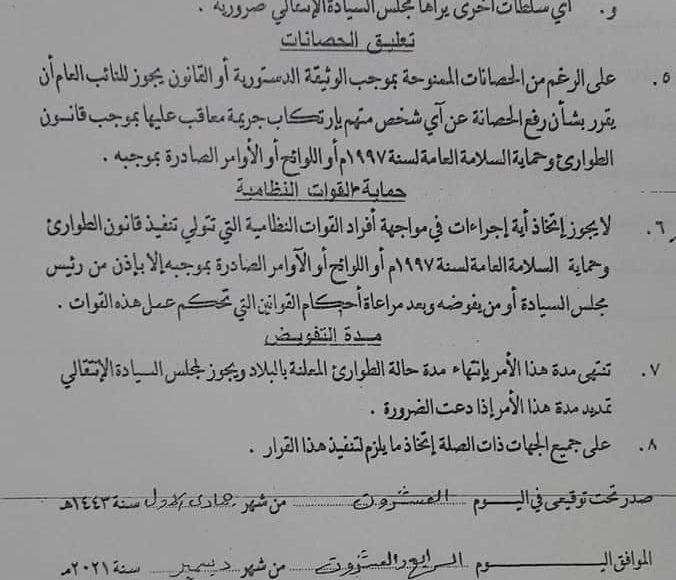 و. أي سلطات أخرى يراها مجلس السيادة الإنتقالي ضرورية .
تعليق الحصانات
٥. على الرغم من الحصانات الممنوحة بموجب الوثيقة الدستورية أو القانون يجوز للنائب العام أن
يقرر بشأن رفع الحصانة عن آي شخص متهم بإرتكاب جريمة معاقب عليها بموجب قانون
الطوارئ وحماية السلامة العامة لسنة ١٩٩٧م أو اللوائح أو الأوامر الصادرة بموجبه .
حماية القوات النظامية
٦. لا يجوز إتخاذ أية إجراءات في مواجهة أفراد القوات النظامية التي تتولي تنفيذ قانون الطوارئ
وحماية السلامة العامة لسنة ١٩٩٧م أو اللوائح أو الآوامر الصادرة بموجبه إلا بإذن من رئيس
مجلس السيادة أو من يفوضه وبعد مراعاة أحكام القوانين التي تحكم عمل هذه القوات .
مدة التفويض
٧. تنتهي مدة هذا الأمر بإنتهاء مدة حالة الطوارئ المعلنة بالبلاد ويجوز لمجلس السيادة الإنتقالي
تمديد مدة هذا الأمر إذا دعت الضرورة .
٨. على جميع الجهات ذات الصلة إتخاذ ما يلزم لتنفيذ هذا القرار .
صدر تحت توقيعي في اليوم العشرون من شهر جمادى الاول سنة ١٤٤٣هـ
الموافق اليوم الرابع والعشرون من شهر ديسمبر سنة ٢٠٢١م